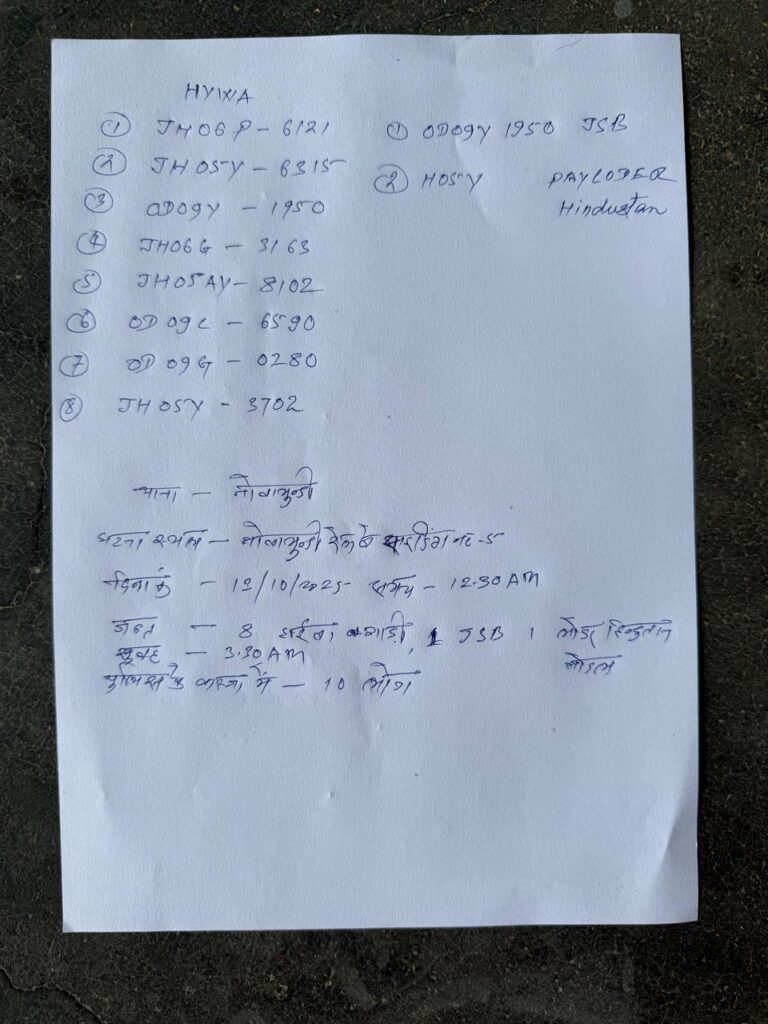 HYWA
① JH06P - 6121
② JH05Y - 6315
③ OD09Y - 1950
④ JH06G - 3163
⑤ JH05AY - 8102
⑥ OD09L - 6590
⑦ OD09G - 0280
⑧ JH05Y - 3702
① OD09Y 1950 JSB
② H05Y PAYLODER
Hindustan
थाना - नोवामुन्डी
घटना स्थल - नोवामुन्डी रेलवे साईडिंग नं-5
दिनांक - 13/10/2025 समय - 12.30 AM
जब्त - 8 हाईवा गाडी, 1 JSB 1 लोडर हिन्दुस्तान
मोडल
सुबह - 3.30 AM
पुलिस के कब्जा में - 10 लोग